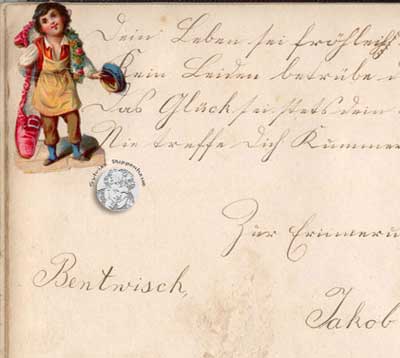 Dein Leben sei fröhlich
Kein Leiden betrübe d
Das Glück sei stets dein
Nie treffe Dich Kummer
Sylvias Puppenheim
Zur Erinneru
Bentwisch,
Jakob